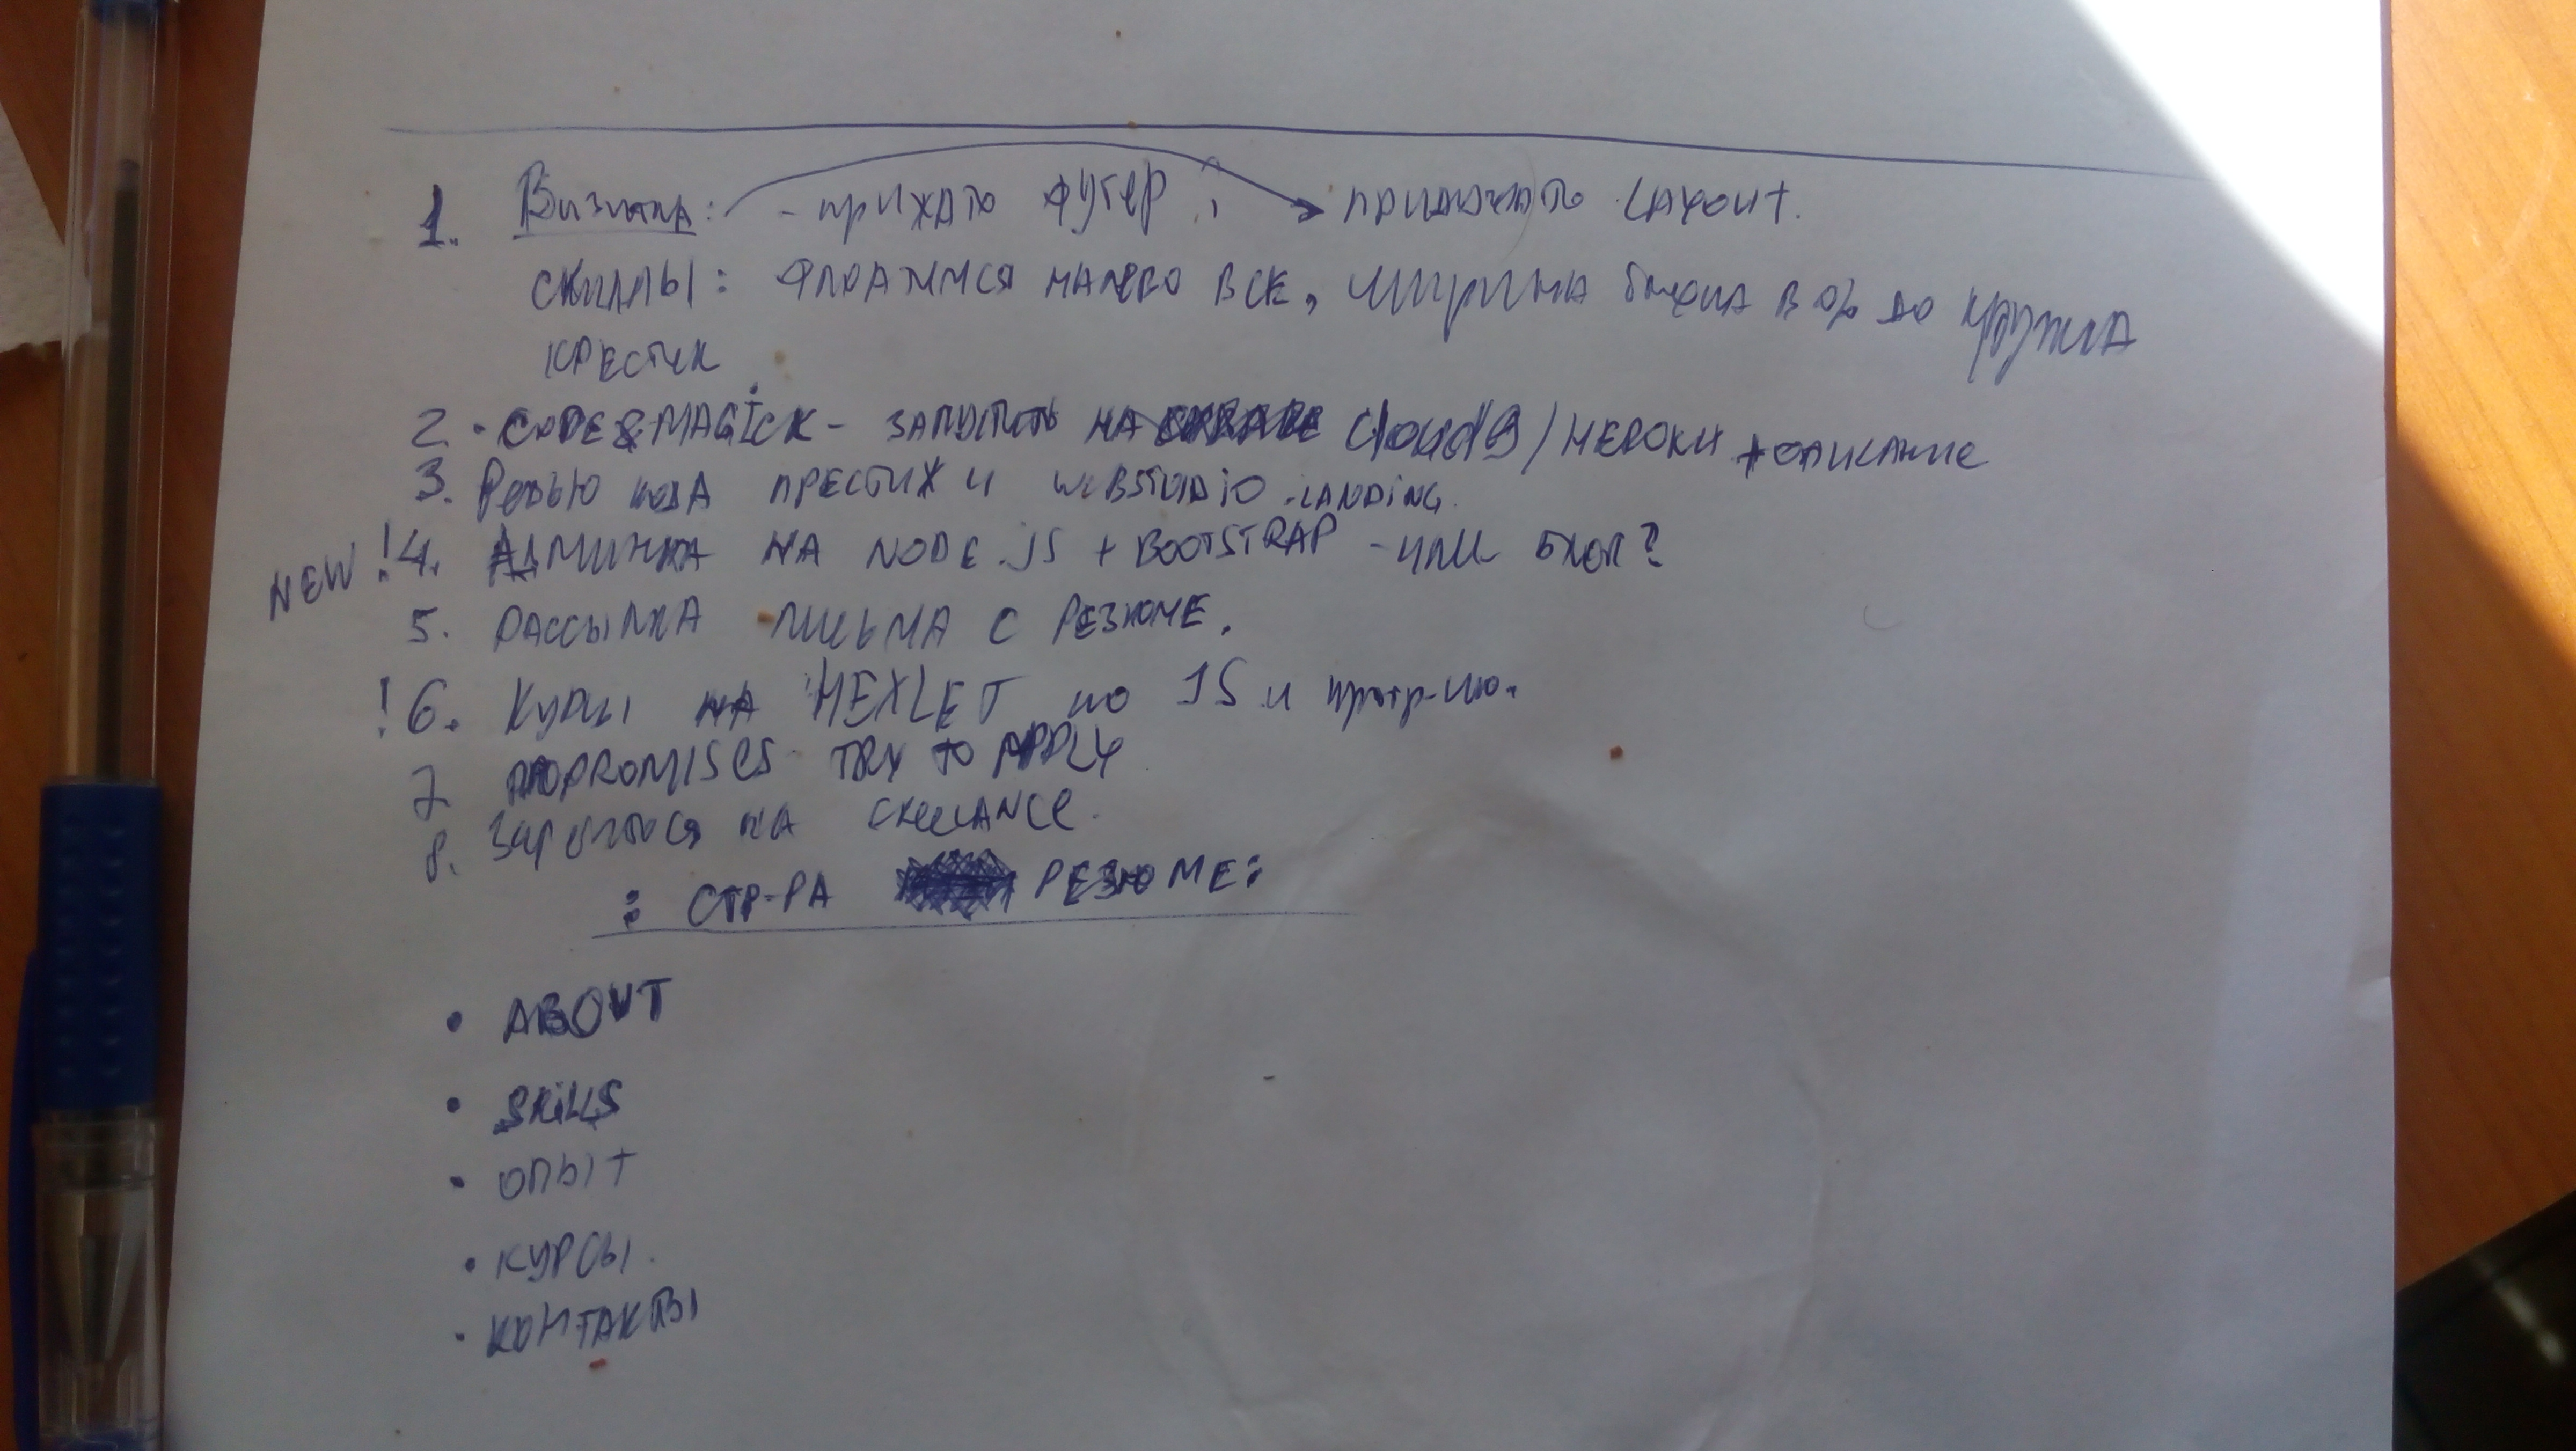 1. Визитка: - прижать футер, придумать LAYOUT.
СКИЛЛЫ: флоатимся налево все, ширина блока в % до кружка
КРЕСТИК
2. CODE&MAGICK - запустить на Cloud9 / HEROKU + описание
3. Ревью кода ПРЕСТИЖ и WEBSTUDIO LANDING.
NEW !4. Админка на NODE.JS + BOOTSTRAP - или блог?
5. Рассылка письма с резюме.
!6. Курсы на HEXLET по JS и прогр-ию.
7. PROMISES - TRY TO APPLY
8. на
: СТР-РА РЕЗЮМЕ:
• ABOUT
• SKILLS
• ОПЫТ
• КУРСЫ.
• КОНТАКТЫ